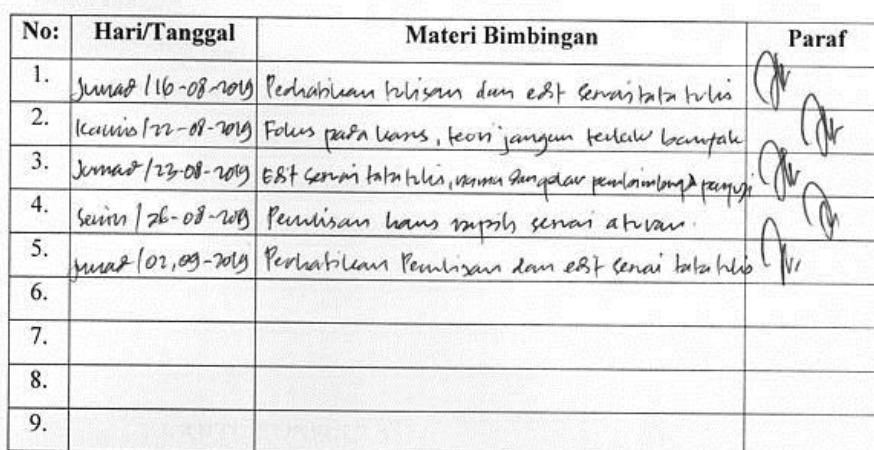 No: Hari/Tanggal Materi Bimbingan Paraf
1. Jumat /16-08-2019 Perhatikan tulisan dan edit sesuai tata tulis
2. Kamis /22-08-2019 Fokus pada kasus, teori jangan terlalu banyak
3. Jumat /23-08-2019 Edit sesuai tata tulis, nama dan gelar pembimbing & penguji
4. Senin /26-08-2019 Penulisan harus rapih sesuai aturan.
5. Jumat /02,09-2019 Perhatikan Penulisan dan edit sesuai tata tulis
6.
7.
8.
9.